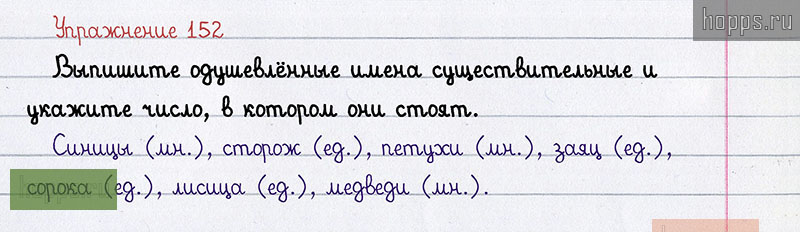 hopps.ru
Упражнение 152
Выпишите одушевлённые имена существительные и
укажите число, в котором они стоят.
Синицы (мн.), сторож (ед.), петухи (мн.), заяц (ед.),
сорока (ед.), лисица (ед.), медведи (мн.).